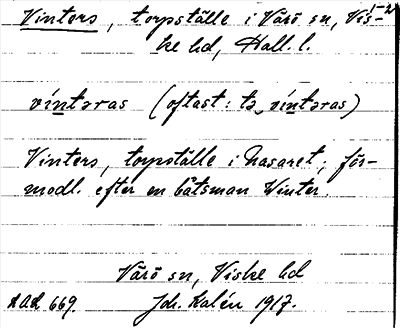 Vinters, torpställe i Värö sn, Vis- 1-2
ke hd, Hall. l.
víntəras (oftast: tə víntəras)
Vinters, torpställe i Nasaret; för-
modl. efter en båtsman Winter.
Värö sn, Viske hd
AAL 669. Joh. Kalén 1917.